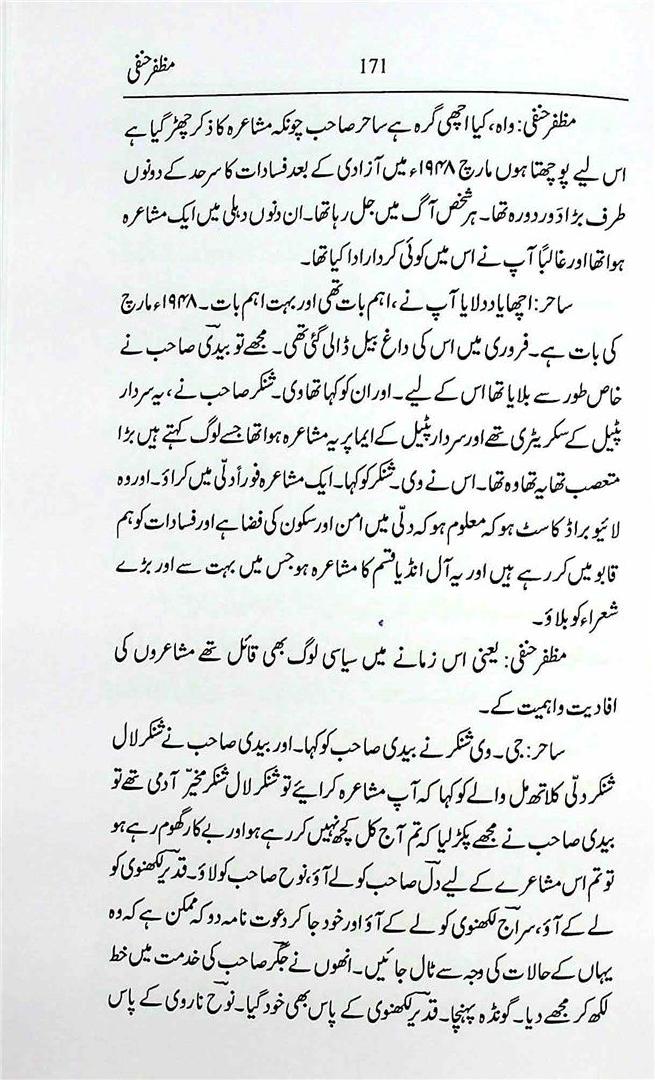 مظفر حنفی
171
مظفر حنفی: واہ، کیا اچھی گرہ ہے ساحر صاحب چونکہ مشاعرہ کا ذکر چھڑ گیا ہے
اس لیے پوچھتا ہوں مارچ ۱۹۴۸ء میں آزادی کے بعد فسادات کا سرحد کے دونوں
طرف بڑا دَور دورہ تھا۔ ہر شخص آگ میں جل رہا تھا۔ ان دنوں دہلی میں ایک مشاعرہ
ہوا تھا اور غالباً آپ نے اس میں کوئی کردار ادا کیا تھا۔
ساحر: اچھا یاد دلایا آپ نے، اہم بات تھی اور بہت اہم بات۔ ۱۹۴۸ء مارچ
کی بات ہے۔ فروری میں اس کی داغ بیل ڈالی گئی تھی۔ مجھے تو بیدی صاحب نے
خاص طور سے بلایا تھا اس کے لیے۔ اور ان کو کہا تھا وی۔ شنکر صاحب نے، یہ سردار
پٹیل کے سکریٹری تھے اور سردار پٹیل کے ایما پر یہ مشاعرہ ہوا تھا جسے لوگ کہتے ہیں بڑا
متعصب تھا یہ تھا وہ تھا۔ اس نے وی۔ شنکر کو کہا۔ ایک مشاعرہ فوراً دلّی میں کراؤ۔ اور وہ
لائیو براڈ کاسٹ ہو کہ معلوم ہو کہ دلّی میں امن اور سکون کی فضا ہے اور فسادات کو ہم
قابو میں کر رہے ہیں اور یہ آل انڈیا قسم کا مشاعرہ ہو جس میں بہت سے اور بڑے
شعراء کو بلاؤ۔
مظفر حنفی: یعنی اس زمانے میں سیاسی لوگ بھی قائل تھے مشاعروں کی
افادیت و اہمیت کے۔
ساحر: جی۔ وی شنکر نے بیدی صاحب کو کہا۔ اور بیدی صاحب نے شنکر لال
شنکر دلّی کلاتھ مل والے کو کہا کہ آپ مشاعرہ کرائیے تو شنکر لال شنکر مخیّر آدمی تھے تو
بیدی صاحب نے مجھے پکڑ لیا کہ تم آج کل کچھ نہیں کر رہے ہو اور بے کار گھوم رہے ہو
تو تم اس مشاعرے کے لیے دلؔ صاحب کو لے آؤ، نوح صاحب کو لاؤ۔ قدیرؔ لکھنوی کو
لے کے آؤ، سراجؔ لکھنوی کو لے کے آؤ اور خود جا کر دعوت نامہ دو کہ ممکن ہے کہ وہ
یہاں کے حالات کی وجہ سے ٹال جائیں۔ انھوں نے جگرؔ صاحب کی خدمت میں خط
لکھ کر مجھے دیا۔ گونڈہ پہنچا۔ قدیرؔ لکھنوی کے پاس بھی خود گیا۔ نوحؔ ناروی کے پاس